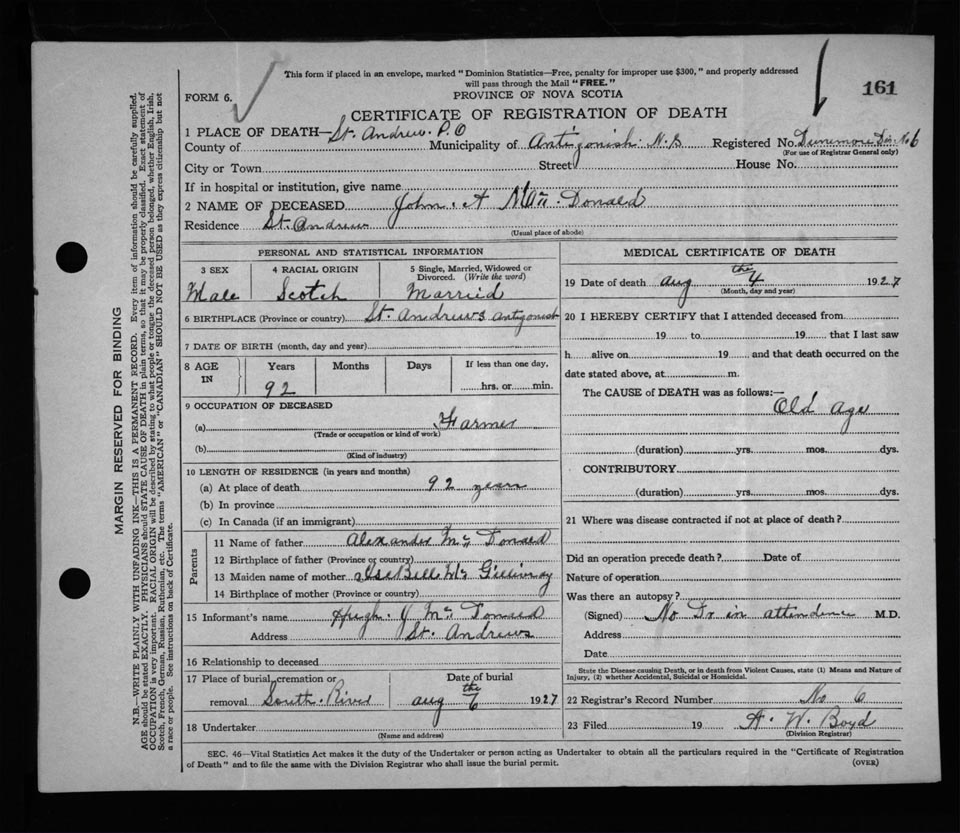 This form if placed in an envelope, marked "Dominion Statistics—Free, penalty for improper use $300," and properly addressed
will pass through the Mail "FREE."
161
FORM 6.
PROVINCE OF NOVA SCOTIA
CERTIFICATE OF REGISTRATION OF DEATH
1 PLACE OF DEATH— St. Andrew. P.O
County of Municipality of Antigonish. N.S Registered No. Dunmore Dis. No 6
(For use of Registrar General only)
City or Town Street House No.
If in hospital or institution, give name
2 NAME OF DECEASED John. A Mac. Donald
Residence St. Andrews
(Usual place of abode)
PERSONAL AND STATISTICAL INFORMATION
3 SEX 4 RACIAL ORIGIN 5 Single, Married, Widowed or
Divorced. (Write the word)
Male Scotch Married
6 BIRTHPLACE (Province or country) St. Andrews Antigonish
7 DATE OF BIRTH (month, day and year)
8 AGE Years Months Days If less than one day,
IN hrs. or min.
92
9 OCCUPATION OF DECEASED
(a) Farmer
(Trade or occupation or kind of work)
(b)
(Kind of industry)
10 LENGTH OF RESIDENCE (in years and months)
(a) At place of death 92 years
(b) In province
(c) In Canada (if an immigrant)
Parents
11 Name of father Alexander Mc Donald
12 Birthplace of father (Province or country)
13 Maiden name of mother IsaBell Mc Gillivray
14 Birthplace of mother (Province or country)
15 Informant's name Hugh. J Mc Donald
Address St. Andrews
16 Relationship to deceased
17 Place of burial, cremation or Date of burial
removal South. River Aug the 6 1927
18 Undertaker
(Name and address)
MEDICAL CERTIFICATE OF DEATH
19 Date of death Aug the 4 1927
(Month, day and year)
20 I HEREBY CERTIFY that I attended deceased from
19 to 19 that I last saw
h alive on 19 and that death occurred on the
date stated above, at m.
The CAUSE of DEATH was as follows:—
Old Age
(duration) yrs. mos. dys.
CONTRIBUTORY
(duration) yrs. mos. dys.
21 Where was disease contracted if not at place of death?
Did an operation precede death? Date of
Nature of operation
Was there an autopsy?
(Signed) No Dr in attendence M.D.
Address
Date
State the Disease causing Death, or in death from Violent Causes, state (1) Means and Nature of
Injury, (2) whether Accidental, Suicidal or Homicidal.
22 Registrar's Record Number No 6
23 Filed 19 A. W. Boyd
(Division Registrar)
SEC. 46—Vital Statistics Act makes it the duty of the Undertaker or person acting as Undertaker to obtain all the particulars required in the "Certificate of Registration
of Death" and to file the same with the Division Registrar who shall issue the burial permit. (OVER)
MARGIN RESERVED FOR BINDING
N.B.—WRITE PLAINLY WITH UNFADING INK—THIS IS A PERMANENT RECORD. Every item of information should be carefully supplied.
AGE should be stated EXACTLY. PHYSICIANS should STATE CAUSE OF DEATH in plain terms, so that it may be properly classified. Exact statement of
OCCUPATION is very important. RACIAL ORIGIN will be described by stating to what people or tongue the deceased person belonged, whether English, Irish,
Scotch, French, German, Russian, Ruthenian, etc. The terms "AMERICAN" or "CANADIAN" SHOULD NOT BE USED as they express citizenship but not
a race or people. See instructions on back of Certificate.